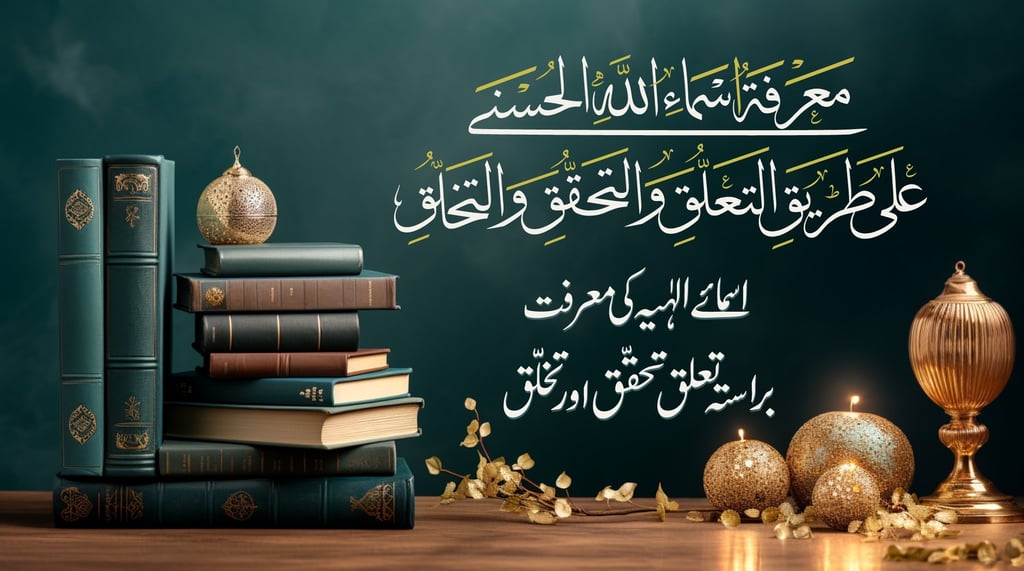 معرفة اسماء الله الحسنى
على طريق التعلق والتحقق والتخلق
اسمائے الہٰیہ کی معرفت
براستہ تعلق تحقّق اور تخلّق